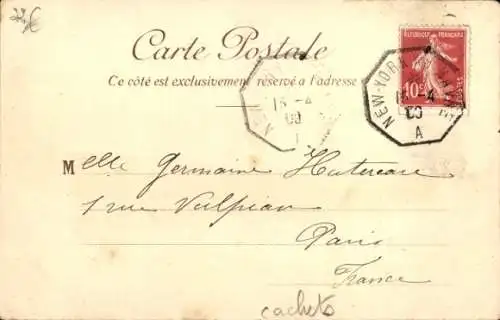 Carte Postale
Ce côté est exclusivement réservé à l'adresse
RÉPUBLIQUE FRANÇAISE
10c
NEW-YORK
15 -4
09
A
15 -4
09
Melle Germaine Hutereau
1 rue Vulpian
Paris
France
cachets